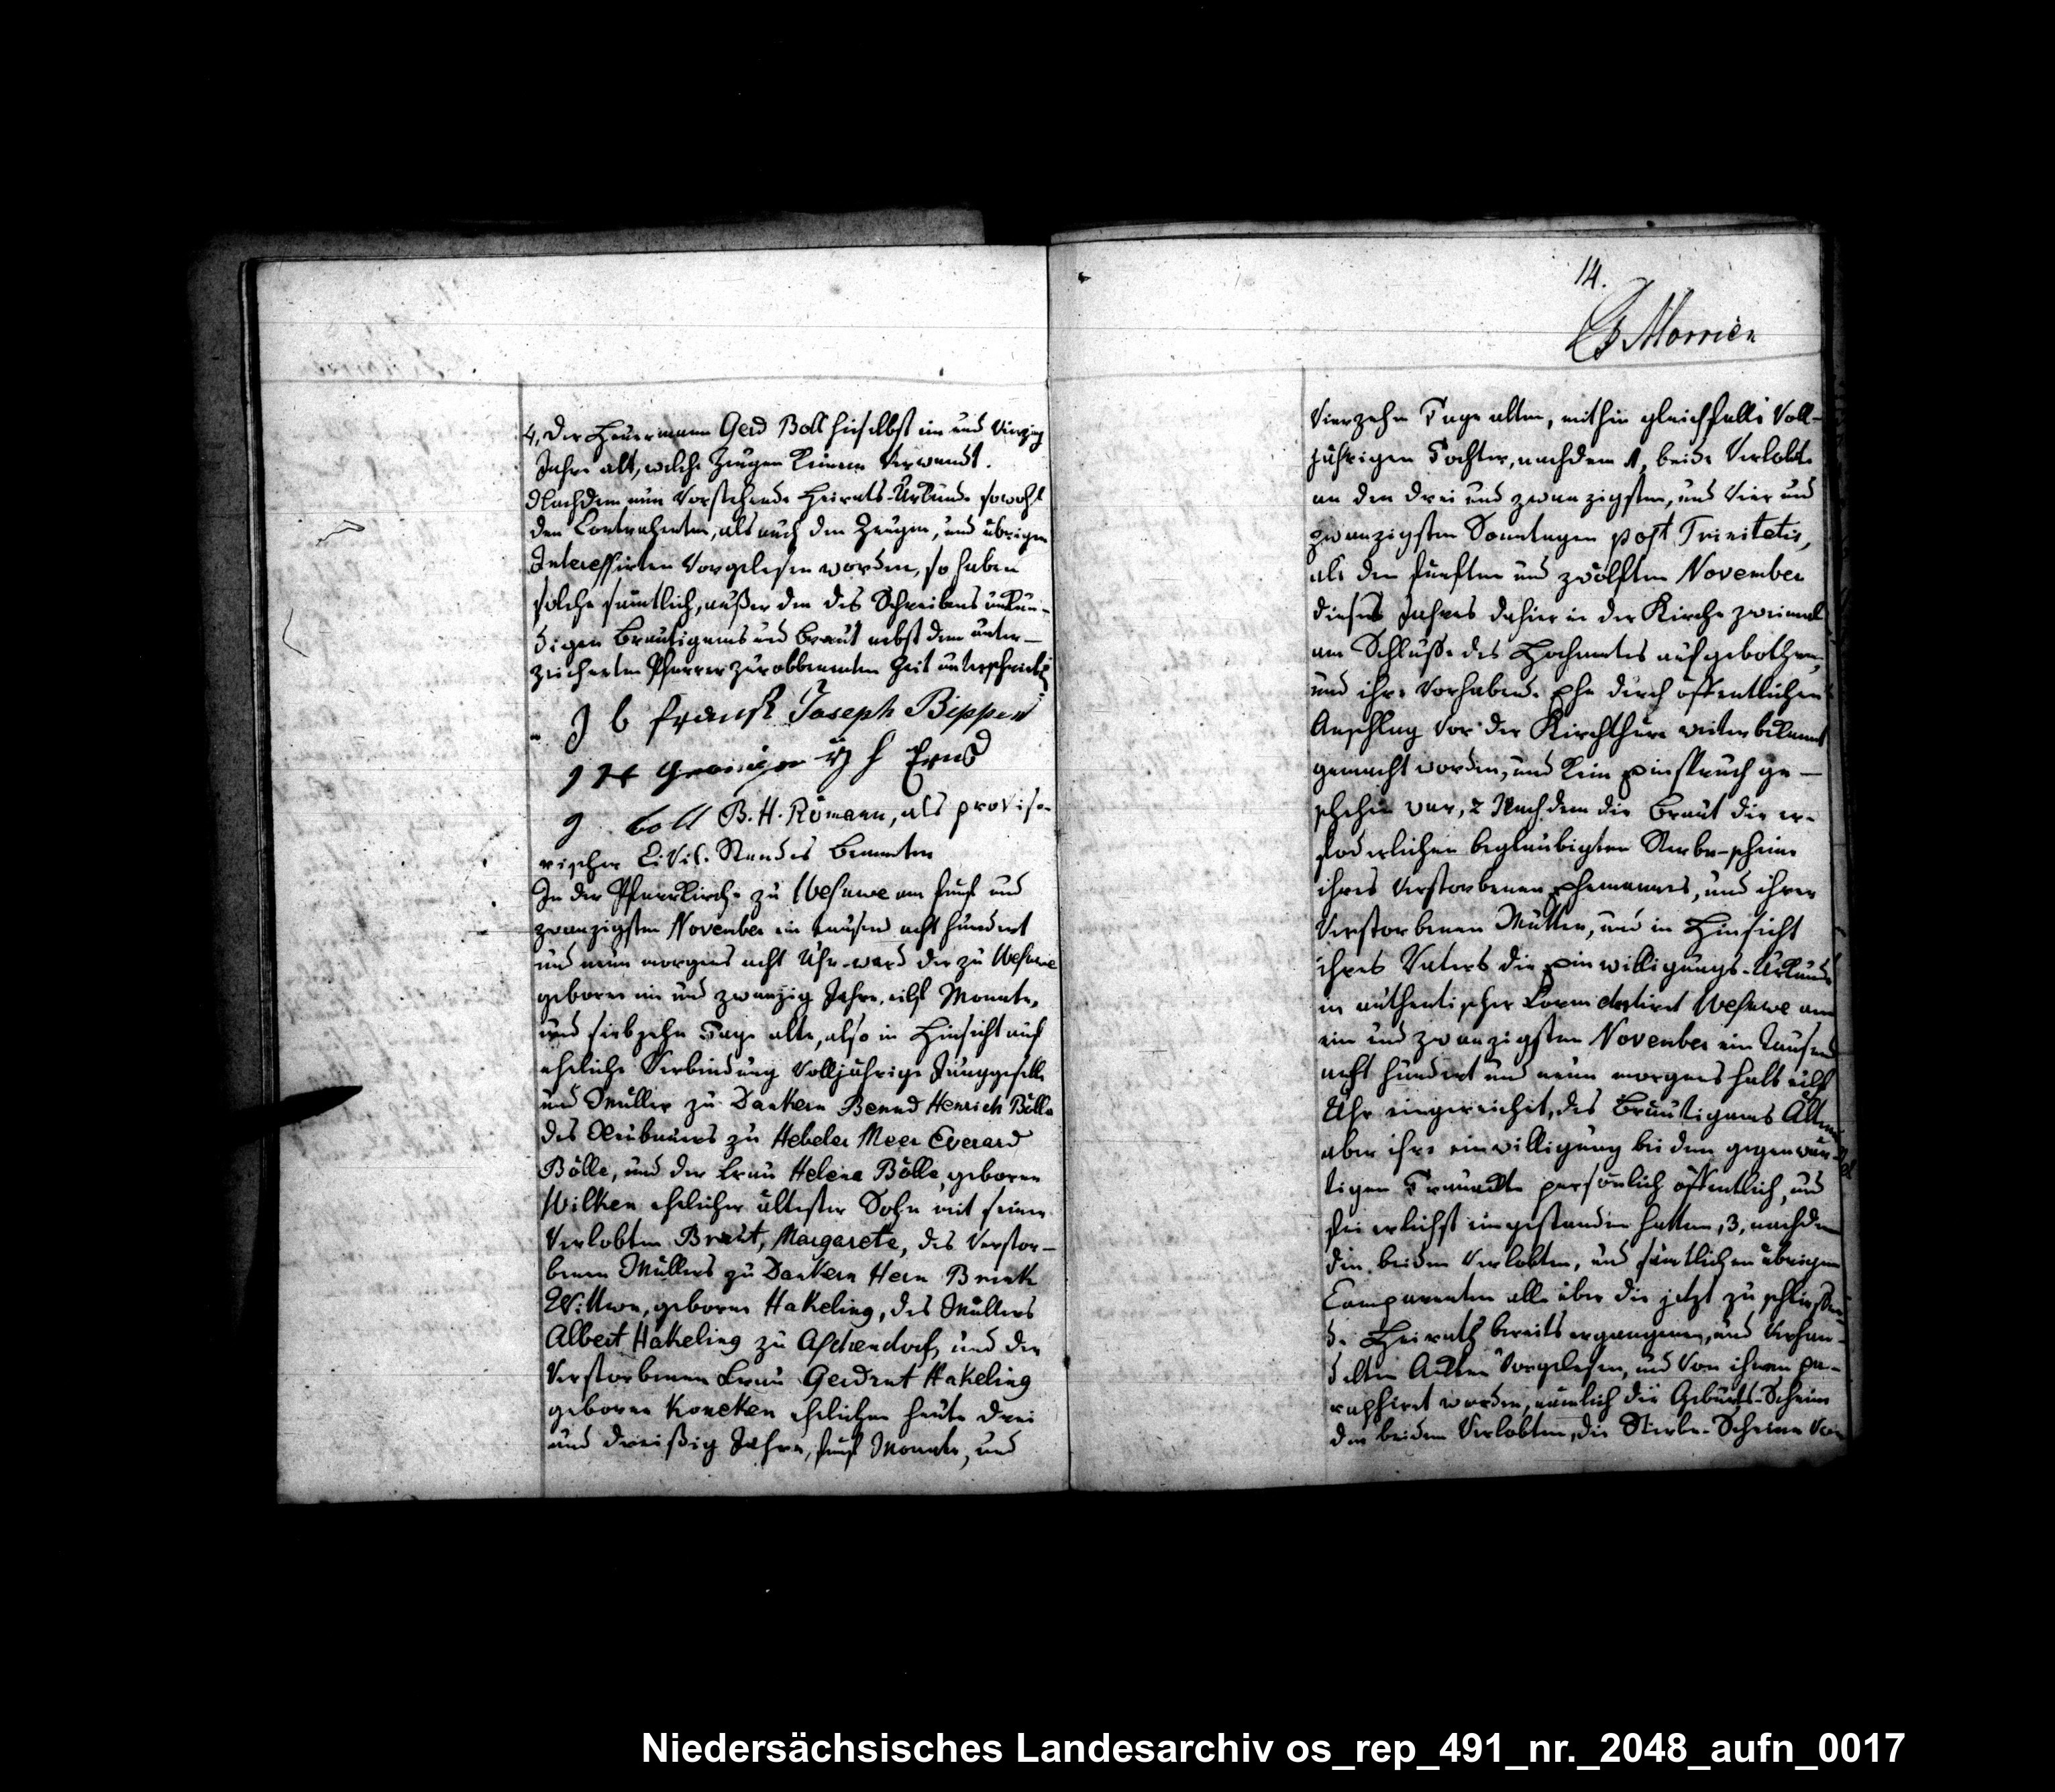 4, der Heuermann Gerd Boll hieselbst ein und vierzig
Jahre alt, welche Zeugen keinem verwandt.
Nachdem nun vorstehende Heirats-Urkunde sowohl
den Contrahenten, als auch den Zeugen, und übrigen
Interessirten vorgelesen worden, so haben
solche sämtlich, außer den des Schreibens unkun-
digen Bräutigams und Braut nebst dem unter-
zeichneten Pfarrer zur obbenannten Zeit unterschrieben
J b Frank Joseph Bippen
J H
g boll B. H. Römann, als proviso-
rischer Civil. Standes Beamter
In der Pfarrkirche zu Wesuwe am fünf und
zwanzigsten November ein tausend acht hundert
und neun morgens acht Uhr ward der zu Wesuwe
geborne ein und zwanzig Jahre, eilf Monate,
und siebzehn Tage alte, also in Hinsicht auf
eheliche Verbindung volljährige Junggeselle
und Müller zu Dankern Bernd Henrich Bölle
des Neubauers zu Hebeler Meer Everard
Bölle, und der Frau Helena Bölle, geborne
Wilken ehelicher ältester Sohn mit seiner
verlobten Braut, Margarete, des verstor-
benen Müllers zu Dankern Herm Brink
Wittwe, geborne Hakeling, des Müllers
Albert Hakeling zu Aschendorf, und der
verstorbenen Frau Gerdrut Hakeling
geborne Koncken ehelichen heute drei
und dreißig Jahre, fünf Monate, und
14.
Morrien
vierzehn Tage alten, mithin gleichfalls voll-
jährigen Tochter, nachdem 1, beide Verlobte
an den drei und zwanzigsten, und vier und
zwanzigsten Sonntagen post Trinitatis,
als den fünften und zwölften November
dieses Jahres dahier in der Kirche zweimal
am Schluße des Hochamtes aufgebothen,
und ihre vorhabende Ehe durch öffentlichen
Anschlag vor der Kirchthüre weiter bekannt
gemacht worden, und kein Einspruch ge-
schehen war, 2 Nachdem die Braut die er-
foderlichen beglaubigten Sterbe-scheine
ihres verstorbenen Ehemannes, und ihrer
verstorbenen Mutter, und in Hinsicht
ihres Vaters die Einwilligungs-Urkunde
in authentischer Form datirt Wesuwe am
ein und zwanzigsten November ein tausend
acht hundert und neun morgens halb eilf
Uhr eingereichet, des Bräutigams Ältern
aber ihre einwilligung bei dem gegenwär-
tigen Trauackte persönlich öffentlich, und
feierlichst eingestanden hatten, 3, nachdem
den beiden Verlobten, und sämtlichen übrigen
Comparenten alle über die jetzt zu schließen-
de Heirath bereits ergangenen, und verhan-
delten Ackten vorgelesen, und von ihnen pa-
raphiret worden, nämlich die Geburts-Scheine
der beiden Verlobten, die Sterbe-Scheine von
Niedersächsisches Landesarchiv os_rep_491_nr._2048_aufn_0017